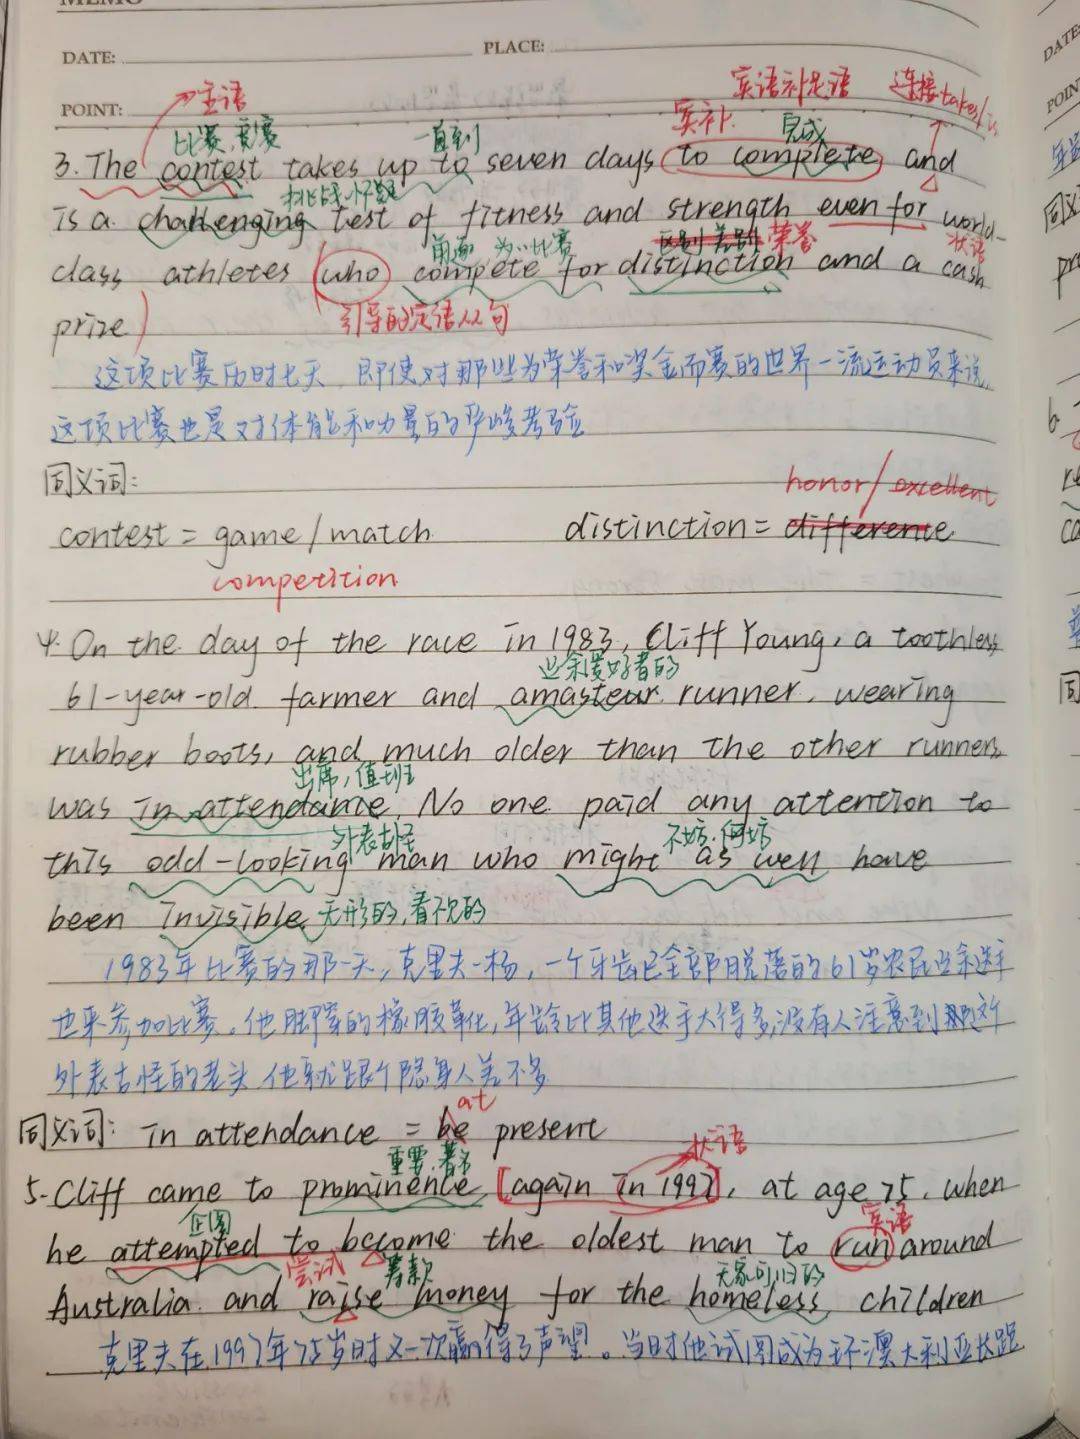 MEMO
DATE:
PLACE:
POINT:
主语
宾语补足语
连接takes/is
比赛,竞赛
一直到
宾补.
完成
3. The contest takes up to seven days (to complete) and
挑战,怀疑
is a challenging test of fitness and strength even for world-
角逐 为..比赛
区别 差别
荣誉
状语
class athletes (who compete for distinction and a cash
prize)
引导的定语从句
这项比赛历时七天,即使对那些为荣誉和奖金而赛的世界一流运动员来说,
这项比赛也是对体能和力量的严峻考验
同义词:
honor/excellent
contest = game/match
distinction = difference
competition
4. On the day of the race in 1983, Cliff Young, a toothless
业余爱好者的
61-year-old farmer and amasteur runner, wearing
rubber boots, and much older than the other runners,
出席,值班
was in attendance. No one paid any attention to
外表古怪
不妨,何妨
this odd-looking man who might as well have
been invisible 无形的,看不见的
1983年比赛的那一天,克里夫-杨,一个牙齿已全部脱落的61岁农民业余选手
也来参加比赛。他脚穿的橡胶革化,年龄比其他选手大得多,没有人注意到那这个
外表古怪的老头 他就跟个隐身人差不多
at
同义词: in attendance = be present
重要,著名
状语
5. Cliff came to prominence [again in 1997], at age 75, when
企图
宾语
he attempted to become the oldest man to run around
尝试
筹款
无家可归的
Australia and raise money for the homeless children
克里夫在1997年75岁时又一次赢得了声望。当时他试图成为环澳大利亚长跑
DATE:
POINT